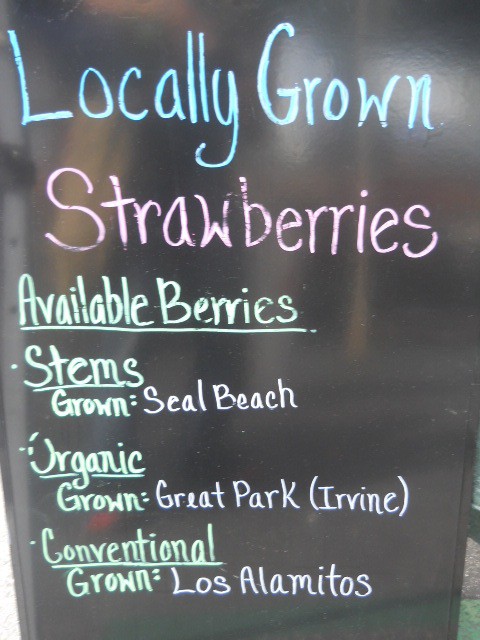 Locally Grown
Strawberries
Available Berries
· Stems
Grown: Seal Beach
· Organic
Grown: Great Park (Irvine)
· Conventional
Grown: Los Alamitos